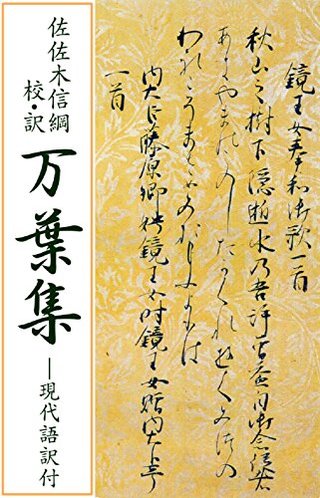 佐佐木信綱
校・訳
万葉集
―現代語訳付
鏡王女奉和御歌一首
秋山之樹下隠逝水乃吾許曽益目御念従者
あきやまのこのしたかくれゆくみつの
われこそまさ
内大臣藤原卿娉鏡王女時鏡王女贈内大臣
一首